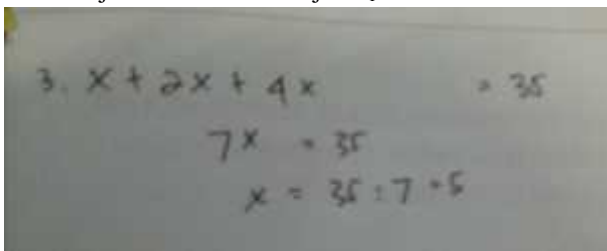 3. x + 2x + 4x = 35
7x = 35
x = 35 : 7 = 5